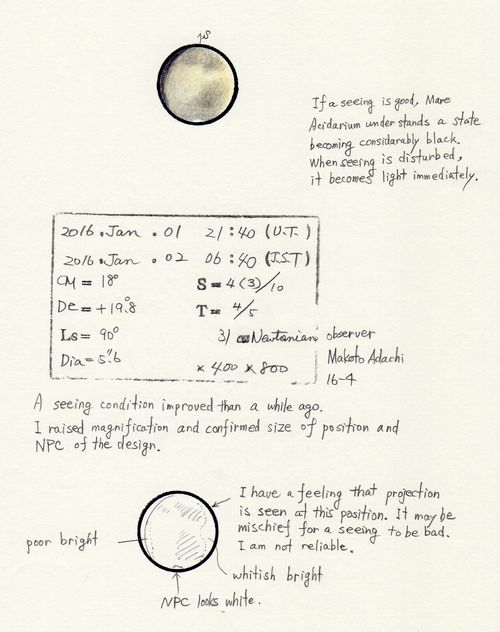 If a seeing is good, Mare
Acidarium understands a state
becoming considarably black.
When seeing is disturbed,
it becomes light immediately.
2016.Jan.01 21:40 (U.T.)
2016.Jan.02 06:40 (J.S.T)
CM = 18° S = 4(3)/10
De = +19.°8 T = 4/5
Ls = 90° 31 cm Newtonian observer
Dia = 5".6 Makoto Adachi
×400 ×800 16-4
A seeing condition improved than a while ago.
I raised magnification and confirmed size of position and
NPC of the design.
I have a feeling that projection
is seen at this position. It may be
mischief for a seeing to be bad.
I am not reliable.
poor bright
whitish bright
NPC looks white.